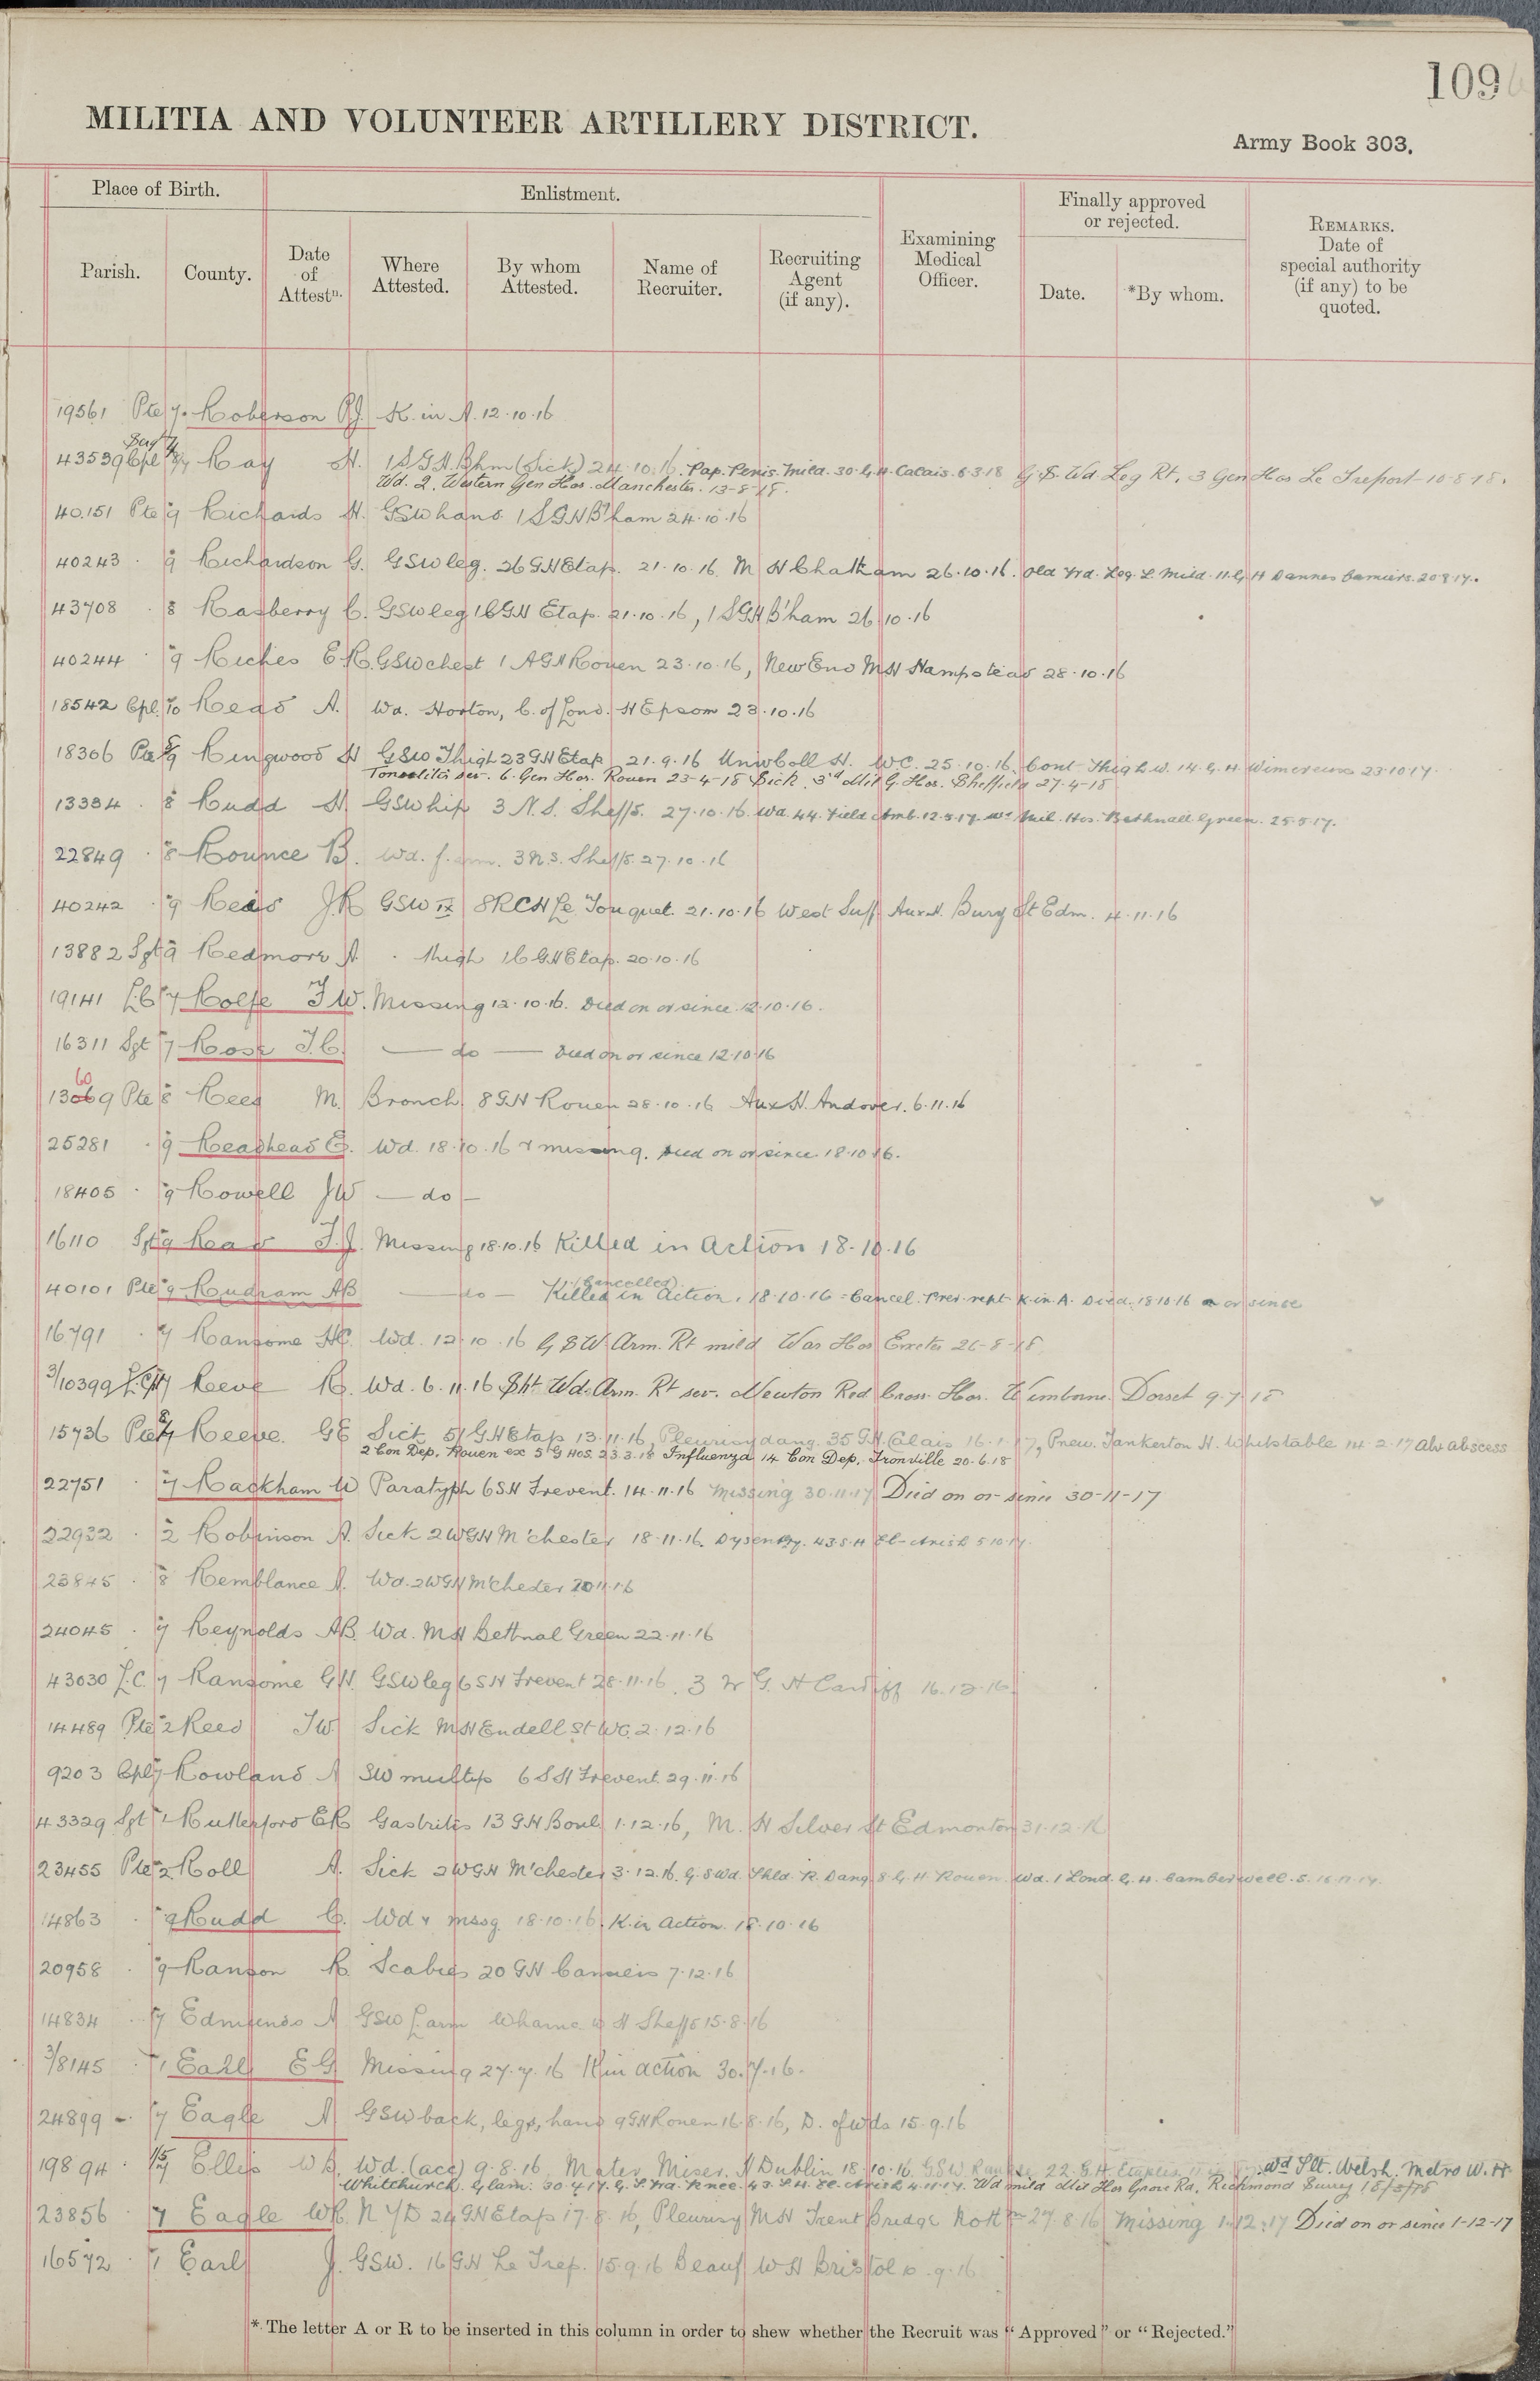 109
MILITIA AND VOLUNTEER ARTILLERY DISTRICT.
Army Book 303.
Place of Birth.
Enlistment.
Finally approved or rejected.
Parish.
County.
Date of Attestn.
Where Attested.
By whom Attested.
Name of Recruiter.
Recruiting Agent (if any).
Examining Medical Officer.
Date.
*By whom.
REMARKS. Date of special authority (if any) to be quoted.
19561 Pte 7 Roberson RJ. K. in A. 12.10.16
43539 Cpl Ray H. 1 S G H Bhm (Sick) 24.10.16. Pap. Penis. Mild. 30. G. H. Calais. 6.3.18 G.S. Wd Leg Rt. 3 Gen Hos Le Treport 10-8-18.
Wd. 2. Western Gen Hos. Manchester. 13-8-18.
40151 Pte 9 Richards H. GSW hand 1 SGH B'ham 24.10.16
40243 . 9 Richardson G. GSW leg. 26 GH Etap. 21.10.16 M H Chatham 26.10.16. Old Frd. Leg. L. Mild. 11. G H Dannes Camiers. 20.8.17.
43708 . 8 Rasberry C. GSW leg 16 GH Etap. 21.10.16, 1 SGH B'ham 26.10.16
40244 . 9 Riches E R. GSW chest 1 A G H Rouen 23.10.16, New End MH Hampstead 28.10.16
18542 Cpl. 10 Read A. Wd. Horton, C. of Lond. H Epsom 23.10.16
18306 Pte 9 Ringwood H GSW Thigh 23 GH Etap 21.9.16 Univ Coll H. WC. 25.10.16. Cont Thigh W. 14. G. H. Wimereux 23.10.17.
Tonsilitis sev. 6. Gen Hos. Rouen 23-4-18 Sick. 3rd Mil G. Hos. Sheffield 27-4-18
13334 . 8 Rudd H. GSW hip 3 N. G. Sheff. 27.10.16. Wd. 44. Field Amb. 12.5.17. Wd Mil. Hos. Bethnall Green. 25.5.17.
22849 . 8 Rounce B. Wd. f. arm. 3 N.G. Sheff. 27.10.16
40242 . 9 Reads J.R GSW 8 RCH Le Touquet. 21.10.16 West Suff Aux H. Bury St Edm. 4.11.16
13882 Sgt 9 Redmore A . thigh 16 GH Etap. 20.10.16
19141 L.C 7 Rolfe F W. Missing 12.10.16. Died on or since. 12.10.16.
16311 Sgt 7 Rose T.C. — do — Died on or since 12.10.16
60
13069 Pte 8 Reed M. Bronch. 8 GH Rouen 28.10.16 Aux H. Andover. 6.11.16
25281 . 9 Readhead E. Wd. 18.10.16 & missing. Died on or since 18.10.16.
18405 . 9 Rowell JW — do —
16110 Sgt 9 Read F.J. Missing 18.10.16 Killed in Action 18.10.16
40101 Pte 9 Rudram AB — do — Killed in Action. (Cancelled) 18.10.16 = Cancel. Prev. rept K. in A. Died. 18.10.16 or since
16791 . 7 Ransome HC. Wd. 12.10.16 G S W Arm. Rt mild War Hos Exeter 26-8-18.
3/10399 L.C. 7 Reeve R. Wd. 6.11.16 Sht Wd. Arm. Rt sev. Newton Red Cross Hos. Wimborne. Dorset 9.7.18
15736 Pte 7 Reeve. GE Sick 51 GH Etap 13.11.16, Pleurisy dang. 35 GH Calais 16.1.17, Pneu. Tankerton H. Whitstable 14.2.17 Abs abscess
2 Con Dep. Rouen ex 5 G Hos. 23.3.18 Influenza 14 Con Dep. Tronville 20.6.18
22751 . 7 Rackham W Paratyph 6 SH Frevent. 14.11.16 Missing 30.11.17 Died on or since 30-11-17
22932 . 2 Robinson A. Sick 2 WGH M'chester 18.11.16. Dysentry. 43 S. H El-Arish 5.10.17.
23845 . 8 Remblance A. Wd. 2 WGH M'chester 20.11.16
24045 . 7 Reynolds AB. Wd. MH Bethnal Green 22.11.16
43030 L.C. 7 Ransome G H. GSW leg 6 SH Frevent 28.11.16. 3 W G. H Cardiff 16.12.16
14489 Pte 2 Reed TW Sick MH Endell St WC. 2.12.16
9203 Cpl 7 Rowland A SW multip 6 S H Frevent 29.11.16
43329 Sgt 1 Rutterford ER Gastritis 13 GH Boul. 1.12.16, M. H Silver St Edmonton 31.12.16
23455 Pte 2 Roll A. Sick 2 WGH M'chester 3.12.16. G. S Wd. Shld. R. Dang. 8. G. H. Rouen. Wd. 1 Lond. G. H. Camberwell. S. 15.11.17.
14863 . 9 Rudd C. Wd & mssg. 18.10.16. K. in Action. 18.10.16
20958 . 9 Ranson R. Scabies 20 GH Camiers 7.12.16
14834 . 7 Edmunds A GSW L arm Wharne. W H Sheff 15.8.16
3/8145 . 1 Earl E G Missing 27.7.16 K in action 30.7.16.
24899 . 7 Eagle A GSW back, legs, hand 9 GH Rouen 16.8.16, D. of wds 15.9.16
19894 . Ellis W B. Wd. (acc) 9.8.16 Mater. Miser. H Dublin 18.10.16. GSW 22 G.H. Etaples Wd Slt. Welsh. Metro W. H.
Whitchurch. Glam. 30.4.17. G. S. Wd. Knee. 43. S. H. El-Arish 4.11.17. Wd mild Mil Hos Grove Rd. Richmond Surrey 18/5/18
23856 . 7 Eagle WR. N Y D 24 GH Etap 17.8.16, Pleurisy MH Trent Bridge Nottm 27.8.16 Missing 1.12.17 Died on or since 1-12-17
16572 . 1 Earl J. GSW. 16 GH Le Trep. 15.9.16 Beauf WH Bristol .9.16
* The letter A or R to be inserted in this column in order to shew whether the Recruit was "Approved" or "Rejected."